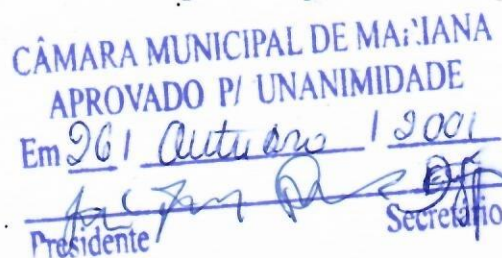 CÂMARA MUNICIPAL DE MARIANA
APROVADO P/ UNANIMIDADE
Em 26 / Outubro / 2001
Presidente Secretário